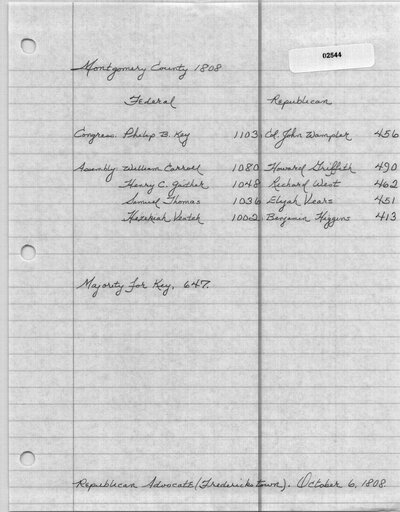 02544
Montgomery County 1808
Federal Republican
Congress: Philip B. Key 1103 Col. John Wampler 456
Assembly: William Carroll 1080 Howard Griffith 490
Henry C. Gaither 1048 Richard West 462
Samuel Thomas 1036 Elijah Viars 451
Hezekiah Veatch 1002 Benjamin Higgins 413
Majority for Key, 647.
Republican Advocate (Frederickstown). October 6, 1808.